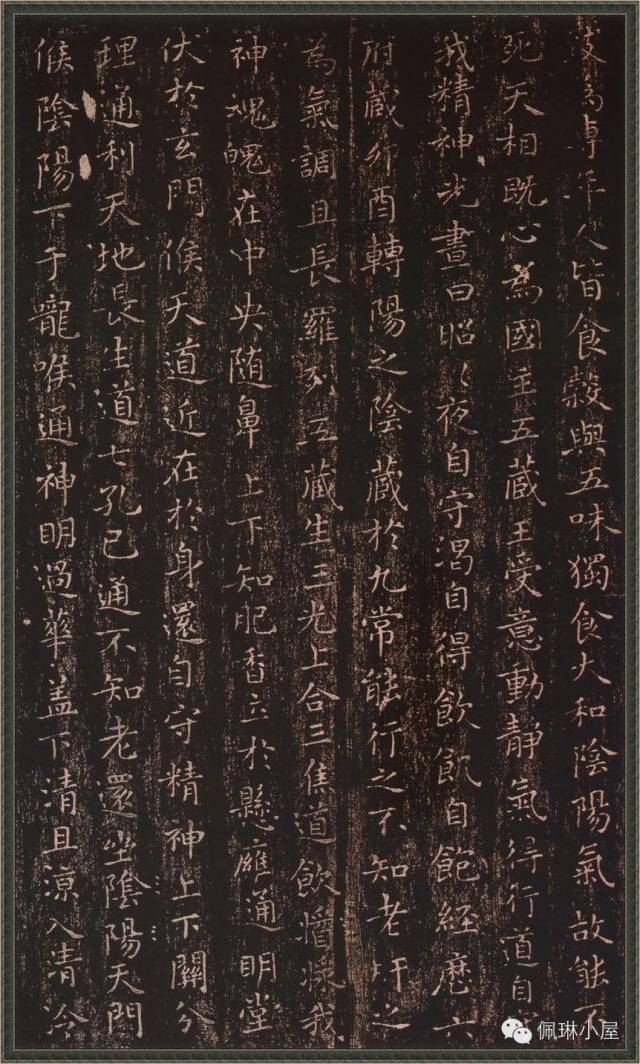 年人皆食穀與五味獨食大和陰陽氣故能不
死天相既心為國主五藏王受意動靜氣得行道自
我精神光晝日昭〻夜自守渴自得飲飢自飽經歷六
府藏卯酉轉陽之陰藏於九常能行之不知老肝之
為氣調且長羅列五藏生三光上合三焦道飲醬漿我
神魂魄在中央随鼻上下知肥香立於懸廱通明堂
伏於玄門候天道近在於身還自守精神上下關分
理通利天地長生道七孔已通不知老還坐陰陽天門
候陰陽下于嚨喉通神明過華蓋下清且涼入清冷
佩琳小屋